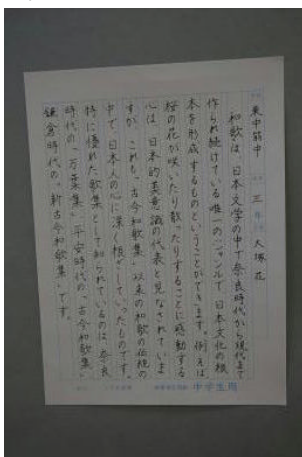 東中筋中 三年 大塚花
和歌は、日本文学の中で奈良時代から現代まで
作られ続けている唯一のジャンルで、日本文化の根
本を形成するものということができます。例えば
桜の花が咲いたり散ったりすることに感動する
心は、日本的美意識の代表と見なされています
が、これも「古今和歌集」以来の和歌の伝統の
中で、日本人の心に深く根ざしていったものです。
特に優れた歌集として知られているのは、奈良
時代の「万葉集」、平安時代の「古今和歌集」、
鎌倉時代の「新古今和歌集」です。
中学生用